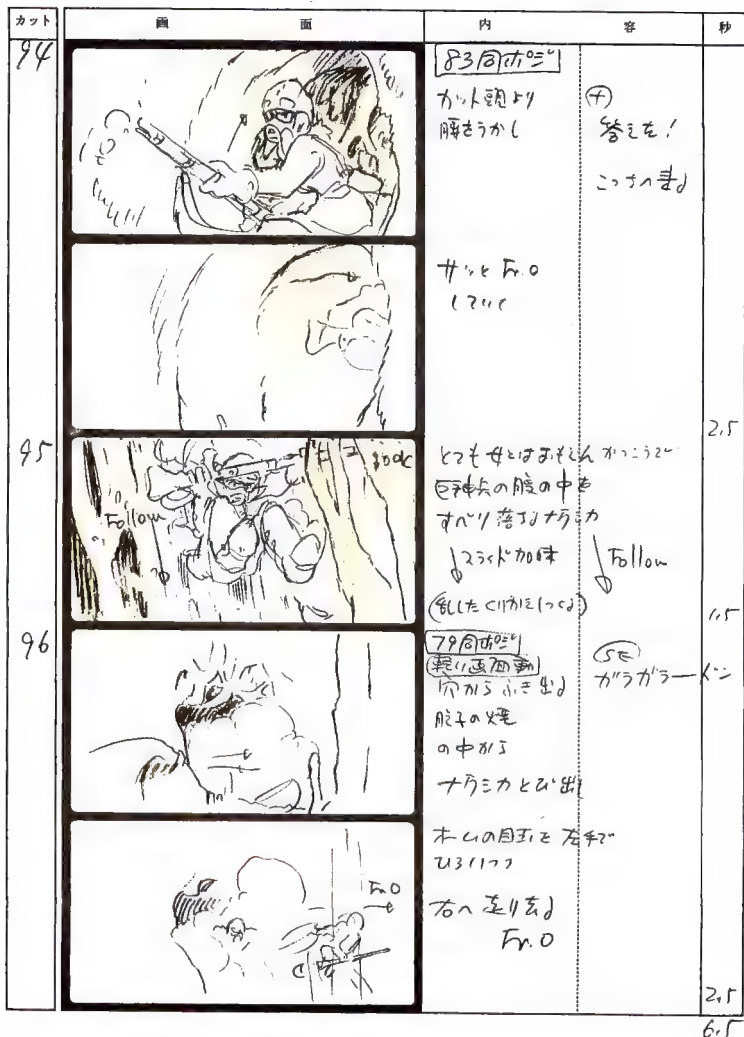 カット 画面 内容 秒
94
83同ポジ
カット頭より
腰をうかし
答えを!
サッと Fr.O
していく
2.5
95
Follow
とても女とはおもえんかっこうで
巨神兵の腹の中を
すべり落ちるナウシカ
スライド加味
Follow
1.5
96
79同ポジ
軽い画面動
穴からふき出る
胞子の煙
の中から
ナウシカとび出し
SE
ガラガラードン
Fr.O
左手で
ひろいつつ
右へ走り去る
Fr.O
2.5
6.5